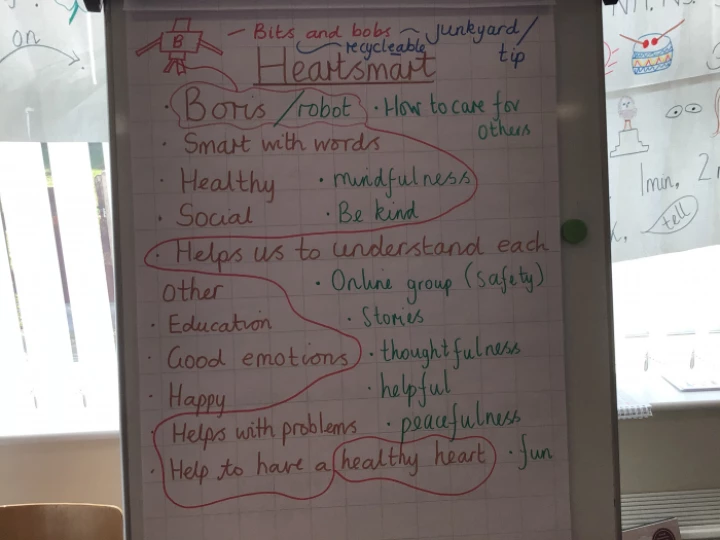 on
B
— Bits and bobs ~ junkyard/
recycleable
tip
Heartsmart
· Boris /robot · How to care for
others
· Smart with words
· Healthy · mindfulness
· Social · Be kind
· Helps us to understand each
other · Online group (safety)
· Education · Stories
· Good emotions · thoughtfulness
· Happy · helpful
Helps with problems · peacefulness
· Help to have a healthy heart · fun
1min,
tell